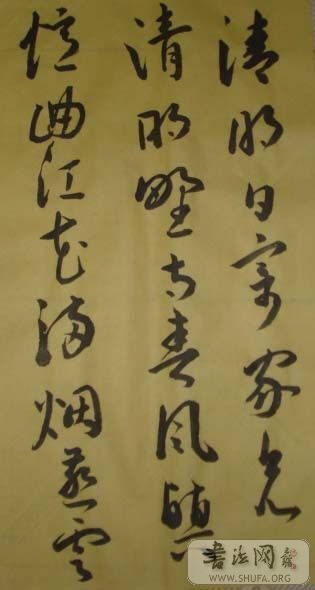 清明日寄家兄
清明野寺春風
憶曲江花满烟雲
書法网
WWW.SHUFA.ORG